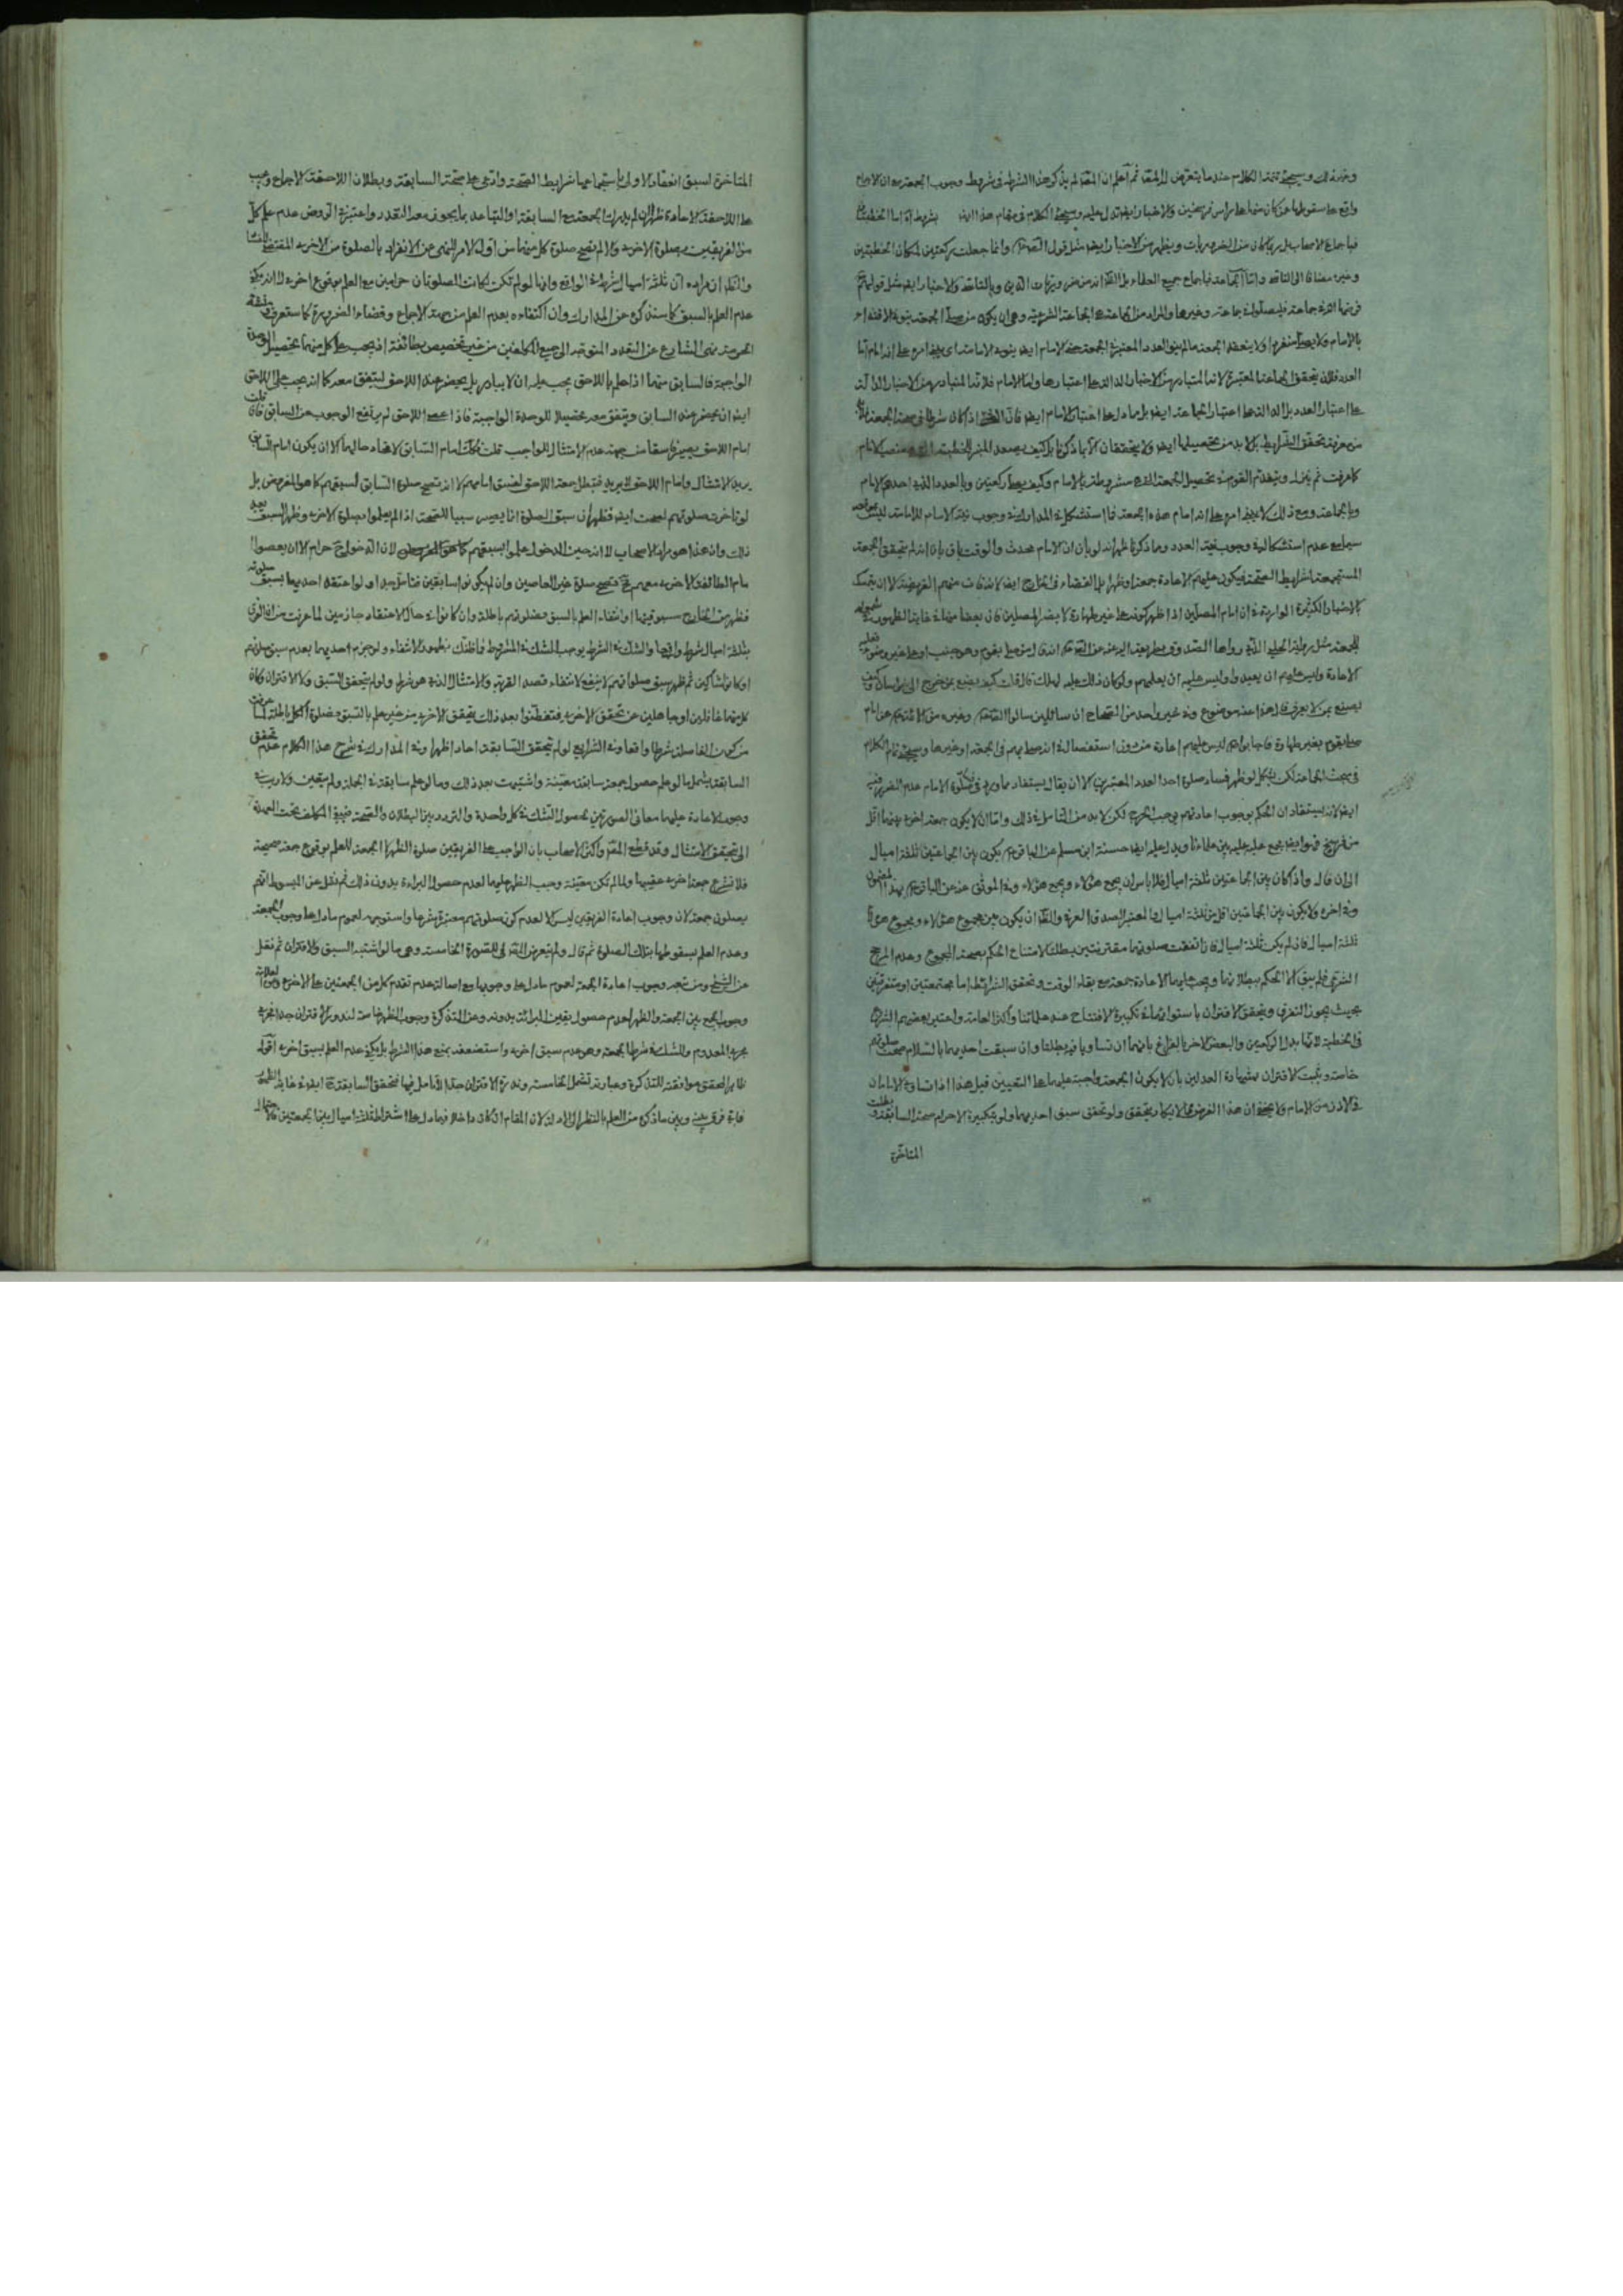 وغير ذلك وسيجئ تتمة الكلام عند ما يتعرض له المص ثم اعلم ان المص لم يذكر هذا الشرط في شروط وجوب الجمعة مع ان الاجماع
واقع على سقوطها عن كان منها على راس فرسخين والاخبار ايضا تدل عليه وسيجئ الكلام في مقام هذا
فباجماع الاصحاب بل ربما كان من الضروريات ويظهر من الاخبار ايضا مثل قول الصادق وانما جعلت ركعتين لمكان الخطبتين
وغيره مضافا الى التاسي واما الجماعة فباجماع جميع العلماء بل الظ انه من ضروريات الدين وبالتاسي والاخبار ايضا مثل قولهم
بالامام فلا يصح منفردا ولا ينعقد الجمعة ما لم ينو العدد المعتبرة الجمعة حتى الامام ايضا ينويه الامامة
العدد فلان يتحقق الجماعة المعتبرة لانها المتبادر من الاخبار الدالة على اعتبارها واما الامام فلانها المتبادر من الاخبار الدالة
على اعتبار العدد بل الدالة على اعتبار الجماعة ايضا بل ما دل على اعتبار الامام ايضا
كما عرفت ثم ينزل ويتقدم القوم تحصيل الجمعة التي مشروطة بالامام وكيف يصلي ركعتين وبالعدد الذي احدهم الامام
وبالجماعة ومع ذلك لا ينوي امره على انه امام هذه الجمعة فما استشكله في المدارك في وجوب نية الامام للامامة ليس
سيما مع عدم استشكاله في وجوب نية العدد ومما ذكرنا ظهر انه لو بان ان الامام محدث والوقت باق بان انه لم يتحقق الجمعة
المستجمعة لشرايط الصحة فيكون عليهم الاعادة جمعة او ظهرا بل القضاء في الخارج ايضا لو فات منهم الفريضة الا ان يتمسك
بالاخبار الكثيرة الواردة في ان امام المصلين اذا ظهر كونه على غير طهارة لا يضر المصلين فان بعضا منها في غاية الظهور
الاعادة وليس عليهم ان يعيدوا وليس عليه ان يعلمهم ولو كان ذلك عليه لهلك قال قلت كيف يصنع بمن خرج الى خراسان وكيف
يصنع بمن لا يعرف قال هذا عنه موضوع وفي غير واحد من الصحاح ان سائلين سالوا الصادق وغيره من الائمة عن امام
صلى بقوم بغير طهارة فاجابوا انه ليس عليهم اعادة من دون استفصال في انه صلى بهم في الجمعة او غيرها وسيجئ تمام الكلام
في مبحث الجماعة لكن يشكل لو ظهر فساد صلوة احد العدد المعتبر الا ان يقال يستفاد مما ورد في صلوة الامام عدم الضرر فيه
ايضا لانه يستفاد ان الحكم بوجوب اعادتهم يوجب الحرج لكن لا بد من التامل في ذلك واما ان لا يكون جمعة اخرى بينهما اقل
من فرسخ فهو ايضا مجمع عليه بين علمائنا ويدل عليه ايضا حسنة ابن مسلم عن الباقر يكون بين الجماعتين ثلثة اميال
الى ان قال واذا كان بين الجماعتين ثلثة اميال فلا باس ان يجمع هؤلاء ويجمع هؤلاء وفي الموثق عنه عن الباقر بهذا المضمون
وفي اخره ولا يكون بين الجماعتين اقل من ثلثة اميال والمعتبر الصدق العرفي والظ ان يكون بين مجموع هؤلاء ومجموع هؤلاء
ثلثة اميال فان لم يكن ثلثة اميال فان اتفقت صلوتهما مقترنتين بطلتا لامتناع الحكم بصحة المجموع وعدم المرجح
الشرعي فلم يبق الا الحكم ببطلانهما ويجب عليهما الاعادة جمعة مع بقاء الوقت وتحقق الشرائط اما مجتمعتين او متفرقتين
بحيث يجوز التفرق ويتحقق الاقتران باستوائهما في تكبيرة الافتتاح عند علمائنا واكثر العامة واعتبر بعضهم الشروع
في الخطبة لانها بدل الركعتين والبعض الاخر الفراغ بانهما ان تساويا فيه بطلتا وان سبقت احديهما بالسلام صحت صلوتهم
خاصة ويثبت الاقتران بشهادة العدلين بان لا يكون الجمعة واجبة عليهما على التعيين قيل هذا اذا تساوى الامامان
في الاذن من الامام ولا يخفى ان هذا الفرض مما لا يكاد يتحقق ولو تحقق سبق احديهما ولو بتكبيرة الاحرام صحت السابقة وبطلت
المتاخرة
المتاخرة لسبق انعقاد الاولى باستجماعها شرايط الصحة وادعى على صحة السابقة وبطلان اللاحقة الاجماع ويجب
على اللاحقة الاعادة ظهرا ان لم يدرك الجمعة مع السابقة او التباعد بما يجوز معه التعدد واعتبر في الروض عدم علم كل
من الفريقين بصلوة الاخرى والا لم تصح صلوة كل منهما من اول الامر للنهي عن الانفراد بالصلوة من الاخرى المقتضي للفساد
والظ ان مراده ان ثلثة اميال شرط في الواقع وانها لو لم تكن لكانت الصلوتان حرامين مع العلم بوقوع اخرى
عدم العلم بالسبق كما سنذكره عن المدارك وان اكتفاءه بعدم العلم من جهة الاجماع وقضاء الضرورة كما ستعرف
الحرمة نهي الشارع عن التعدد المتوجه الى جميع المكلفين من غير تخصيص بطائفة اذ يجب على كل منهما تحصيل الوحدة
الواجبة فالسابق منهما اذا علم باللاحق يجب عليه ان لا يبادر بل يحضر عند اللاحق ليتفق معه كما انه يجب على اللاحق
ايضا ان يحضر عند السابق ويتفق معه تحصيلا للوحدة الواجبة فاذا عصى اللاحق لم يرتفع الوجوب عن السابق فان قلت
امام اللاحق يصير فاسقا من جهة عدم الامتثال للواجب قلت فكذلك امام السابق لاتحاد حالهما الا ان يكون امام السابق
يريد الامتثال وامام اللاحق لا يريد فتبطل جمعة اللاحق لفسق امامهم لا انه تصح صلوة السابق لسبقهم كما هو المفروض بل
لو تاخرت صلوتهم لصحت ايضا فظهر ان سبق الصلوة انما يصير سببا للصحة اذا لم يعلموا بصلوة الاخرى وظهر السبق بعد
ذلك وان هذا هو مراد الاصحاب لا انه حين الدخول علموا بسبقهم كما هو المفروض لان الدخول ح حرام الا ان يعصوا
امام الطائفة الاخرى معهم فح تصح صلوة غير العاصين وان لم يكونوا سابقين فتامل جدا ولو اعتقد احديهما بسبق صلوته
فظهر في الخارج مسبوقيتها وانتفاء العلم بالسبق فصلوتهم باطلة وان كانوا في حال الاعتقاد جازمين لما عرفت
بثلثة اميال شرط واقعا والشك في الشرط يوجب الشك في المشروط فما ظنك بظهور الانتفاء ولو جزم احديهما بعدم سبق صلوتهم
او كانوا شاكين ثم ظهر سبق صلوتهم لا ينفع لانتفاء قصد القربة والامتثال الذي هو شرط ولو لم يتحقق السبق ولا الاقتران وكان
كل منهما غافلين او جاهلين عن تحقق الاخرى فتفطنوا بعد ذلك بتحقق الاخرى من غير علم بالسبق فصلوة الكل باطلة لما عرفت
من كون الفاصلة شرطا واقعا وفي الشرايع لو لم يتحقق السابقة اعادا ظهرا وفي المدارك في شرح هذا الكلام عدم تحقق
السابقة يشمل ما لو علم حصول جمعة سابقة معينة واشتبهت بعد ذلك وما لو علم سابقة في الجملة ولم يتعين ولا ريب في
وجوب الاعادة عليهما معا في الصورتين لحصول الشك في كل واحدة والتردد بين البطلان والصحة فيبقى المكلف تحت العهدة
الى تحقيق الامتثال وقد قطع المص واكثر الاصحاب بان الواجب على الفريقين صلوة الظهر لا الجمعة للعلم بوقوع جمعة صحيحة
فلا تشرع جمعة اخرى عقيبها ولما لم تكن معينة وجب الظهر عليهما لعدم حصول البراءة بدون ذلك ثم نقل عن المبسوط انهم
يصلون جمعة لان وجوب اعادة الفريقين ليس الا لعدم كون صلوتهم معتبرة شرعا واستوجهه لعموم ما دل على وجوب الجمعة
وعدم العلم بسقوطها بتلك الصلوة ثم قال ولم يتعرض المص للصورة الخامسة وهي ما لو اشتبه السبق والاقتران ثم نقل
عن الشيخ ومن تبعه وجوب اعادة الجمعة لعموم ما دل على وجوبها مع اصالة عدم تقدم كل من الجمعتين على الاخرى
وجوب الجمع بين الجمعة والظهر لعدم حصول يقين البرائة بدونه وعن التذكرة وجوب الظهر خاصة لندرة الاقتران جدا
مجرى المعدوم والشك في شرط الجمعة وهو عدم سبق اخرى واستضعفه بمنع هذا الشرط بل يكفي عدم العلم بسبق اخرى اقول
ظاهر المحقق موافقته للتذكرة وعبارته تشمل الخامسة